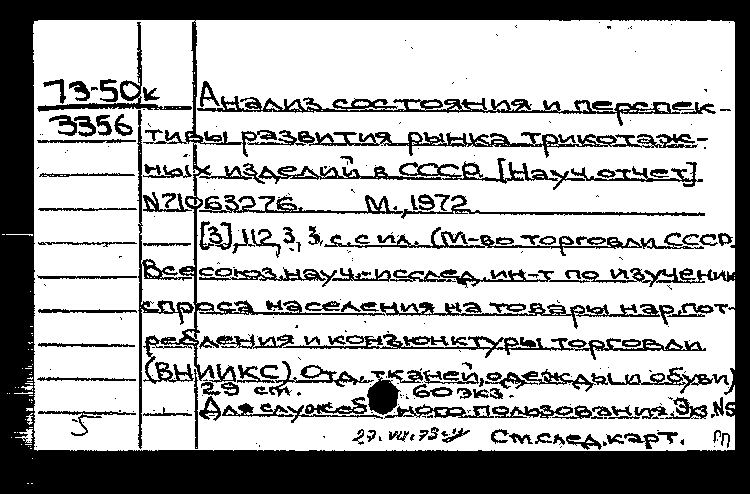 73-50к Анализ состояния и перспек-
3356 тивы развития рынка трикотаж-
ных изделий в СССР. [Науч.отчет]
N71063276. М.,1972.
[3],112,3,3 с. с ил. (М-во торговли СССР.
Всесоюз.науч.-исслед. ин-т по изучению
спроса населения на товары нар.пот-
ребления и конъюнктуры торговли
(ВНИИКС). Отд. тканей,одежды и обуви)
29 см. 60 экз.
Для служебного пользования. Экз.N5
5 См.след.карт.